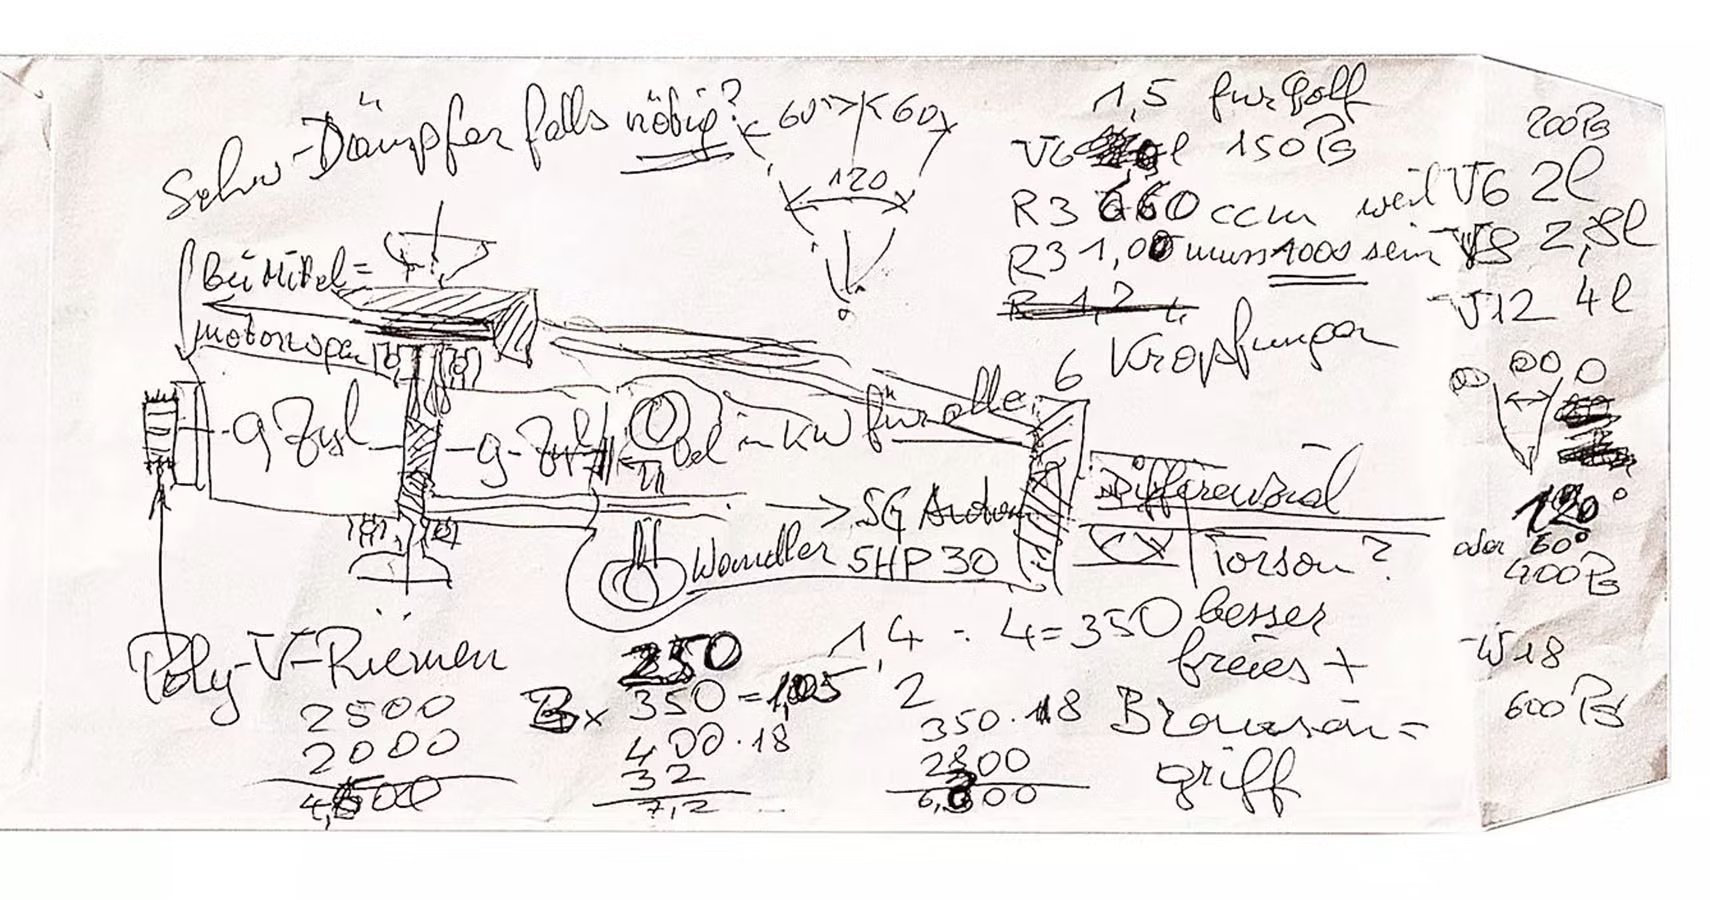 Schw-Dämpfer falls nötig?
60°>K 60
120
1,5 für Golf
V6 l 150 PS
R3 660 ccm weil V6 2l
R3 1,00 muss 1000 sein V8 2,8l
V12 4l
200 PS
6 Kröpfungen
bei Mittel=
motorwagen
9 Zyl
9-Zyl
Öl in KW für alle
→ 5G Autom
Wandler 5HP30
Differenzial
Torson?
besser
freies +
120°
oder 60°
400 PS
W18
600 PS
Poly-V-Riemen
2500
2000
250
350 = 1,05
400.18
32
7,2
1,4 : 4=350
2
350.18
2800
6,300
griff